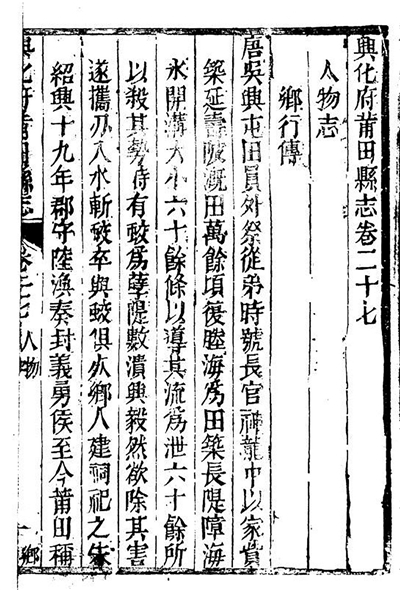 興化府莆田縣志卷二十七
人物志
鄉行傳
唐吳興屯田員外祭從弟時號長官神龍中以家貲
築延壽陂溉田萬餘頃復塍海為田築長隄障海
水開溝大小六十餘條以導其流為泄六十餘所
以殺其勢時有蛟為孽隄數潰興毅然欲除其害
遂攜刃入水斬蛟卒與蛟俱死鄉人建祠祀之宋
紹興十九年郡守陸渙奏封義勇侯至今莆田稱
興化府莆田縣志 卷二七 人物 一 鄉